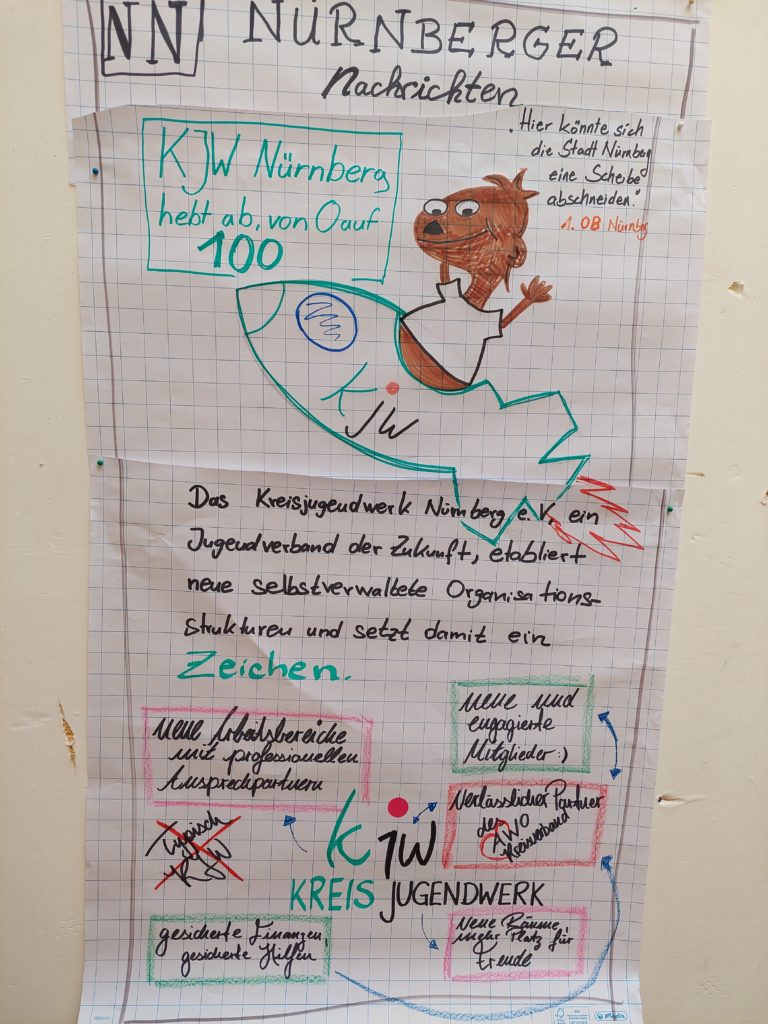 NN NÜRNBERGER
Nachrichten
KJW Nürnberg
hebt ab, von 0 auf
100
„Hier könnte sich
die Stadt Nürnberg
eine Scheibe
abschneiden."
1. OB Nürnberg
KJW
Das Kreisjugendwerk Nürnberg e.V, ein
Jugendverband der Zukunft, etabliert
neue selbstverwaltete Organisations-
strukturen und setzt damit ein
Zeichen.
neue und
engagierte
Mitglieder :)
neue Arbeitsbereiche
mit professionellen
Ansprechpartnern
verlässlicher Partner
des AWO
Kreisverband
typisch
KJW
kjw
KREIS JUGENDWERK
gesicherte Finanzen,
gesicherte Hilfen
Neue Räume,
mehr Platz für